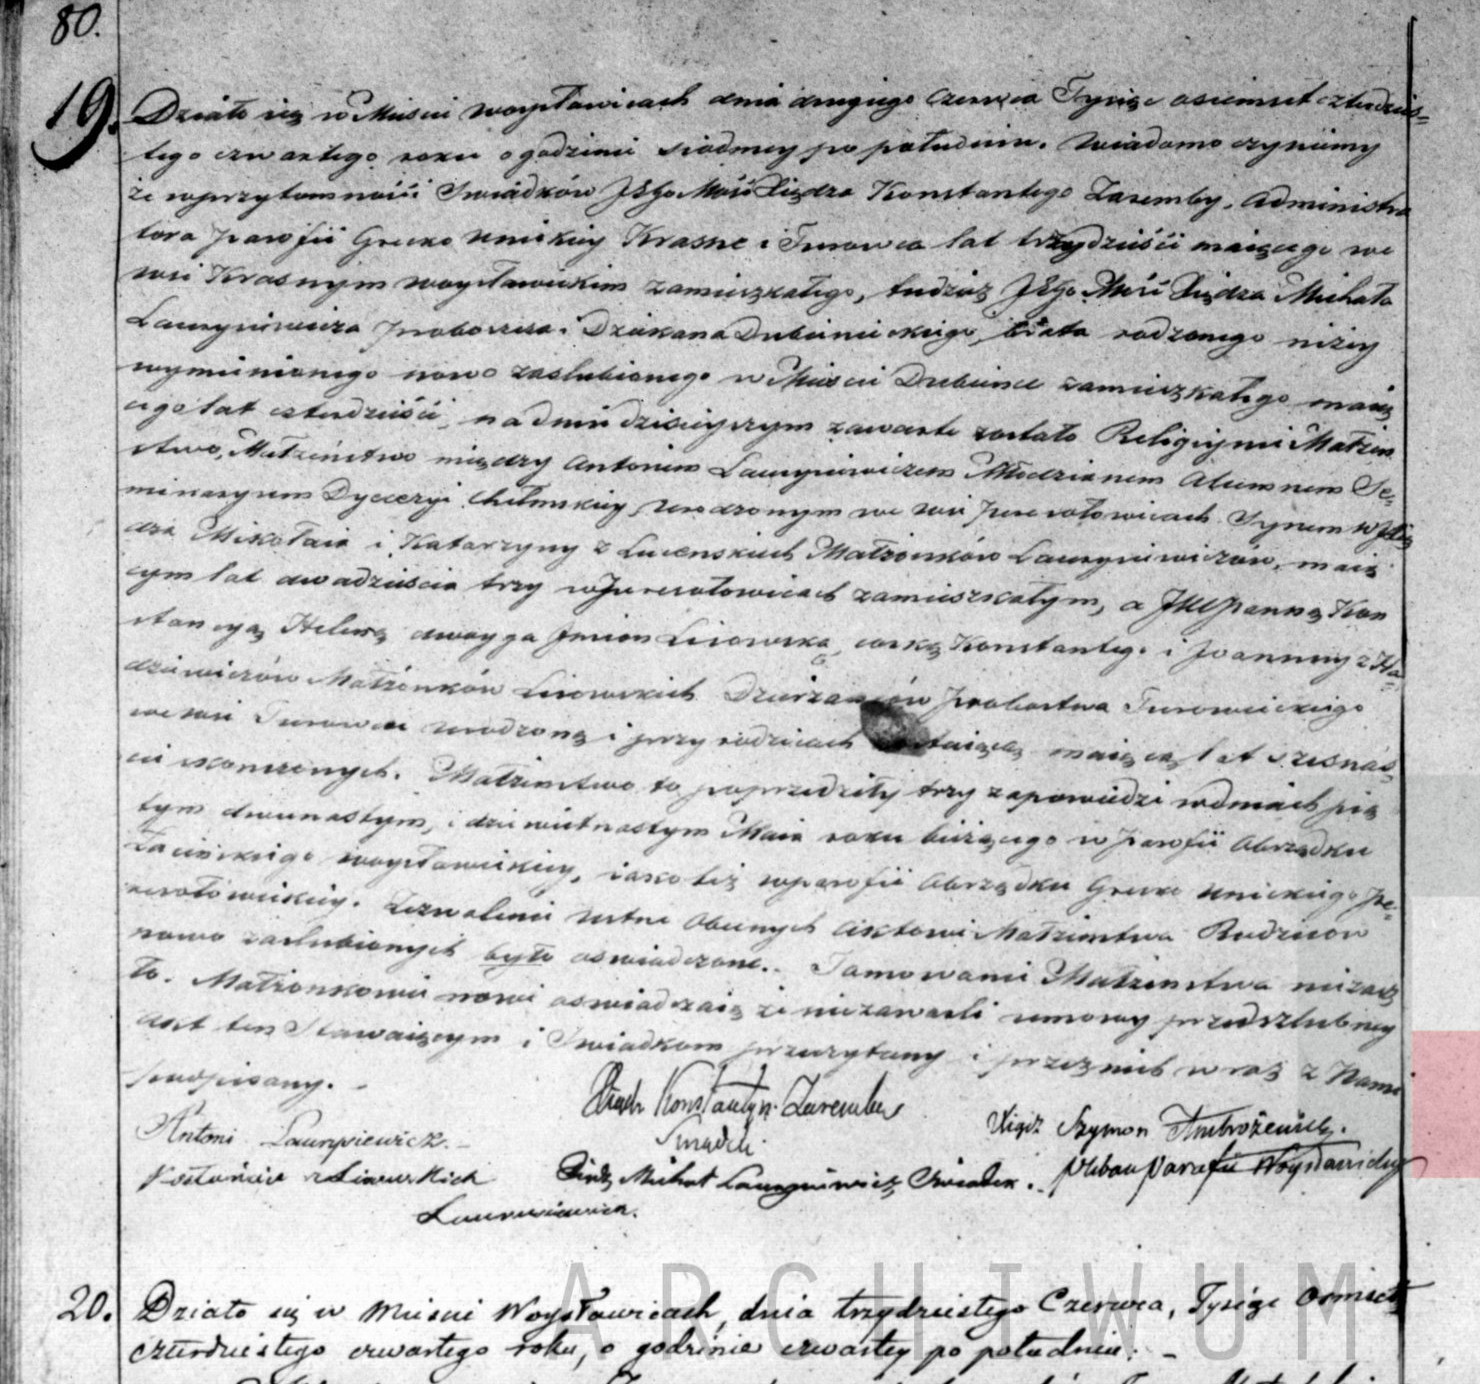 80.
19. Działo się w Mieście Woysławicach dnia drugiego Czerwca Tysiąc osiemset czterdzies=
tego czwartego roku o godzinie siódmey po południu. Wiadomo czyniemy
że w przytomności Swiadków JEgo Mość Xiędza Konstantego Zaremby, Administra
tora parofii Grecko Unickiey Krasne i Turowca lat trzydzieści maiącego we
wsi Krasnym woysławickim zamieszkałego, tudzież JEgo Mość Xiędza Michała
Laurysiewicza proboszcza i Dziekana Dubienieckiego, brata rodzonego niżey
wymienionego nowo zaslubionego w Mieście Dubience zamieszkałego maią
cego lat czterdzieści, na dniu dzisieyszym zawarte zostało Religiyne Małżeń
stwo, Małżeństwo między Antonim Laurysiewiczem Młodzianem Alumnem Se=
minaryum Dyecezyi Chełmskiey, urodzonym we wsi Peresołowicach Synem
dza Mikołaia i Katarzyny z Lewenskich Małżonków Laurysiewiczów, maią
cym lat dwadzieścia trzy w Peresołowicach zamieszkałym, a JW Panną Kon
stancyą Heleną dwoyga Jmion Lisowską, córką Konstantego i Joanny z
dziewiczów Małżonków Lisowskich Dzierżawców probostwa Turowieckiego
we wsi Turowcu urodzoną i przy rodzicach maiącą lat szesnaś=
cie skonczonych. Małżeństwo to poprzedziły trzy zapowiedzi w dniach pią
tym dwunastym, i dziewietnastym Maia roku bieżącego w parofii Obrządku
Łacińskiego woysławickiey, iako też w parofii Obrządku Grecko Unickiego Pe=
resołowickiey. Zezwolenie ustne obecnych Aktowi Małżeństwa Rodziców
nowo zaslubionych było oświadczone. Tamowanie Małżenstwa nie zasz
ło. Małżonkowie nowi oswiadczaią że nie zawarli umowy przedslubney
Akt ten Stawaiącym i Swiadkom przeczytany i przez nich wraz z Nami
podpisany.
Xiądz Konstantyn Zaremba
Swiadek
Xiądz Szymon Ambrożewicz.
Antoni Laurysiewicz.
Kostancia z Lisowskich
Laurysiewicz.
Xiądz Michał Laurysiewicz Swiadek.
Pleban Parafii Woysławickiey
20. Działo się w Mieście Woysławicach, dnia trzydziestego Czerwca, Tysiąc Osmset
czterdziestego czwartego roku, o godzinie czwartey po południu.
ARCHIWUM